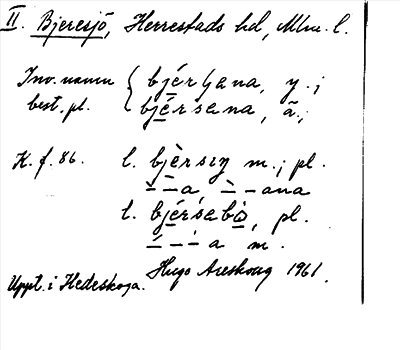 II. Bjeresjö, Herrestads hd, Mlm. l.
Inv.namn { bjérʃana, y.;
best. pl. bjérsena, ä.;
K. f. 86. l. bjèrsiŋ m.; pl.
– – a – – ana
l. bjérsabò, pl.
– – – a m.
Hugo Areskoug 1961.
Uppt. i Hedeskoga.